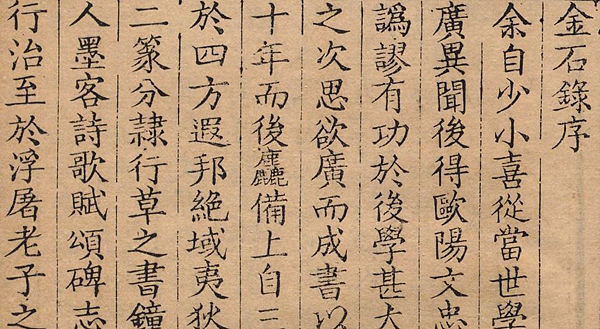 金石錄序
余自少小喜從當世學
廣異聞後得歐陽文忠
譌謬有功於後學甚大
之次思欲廣而成書以
十年而後麤備上自三
於四方遐邦絶域夷狄
二篆分隷行草之書鐘
人墨客詩歌賦頌碑志
行治至於浮屠老子之